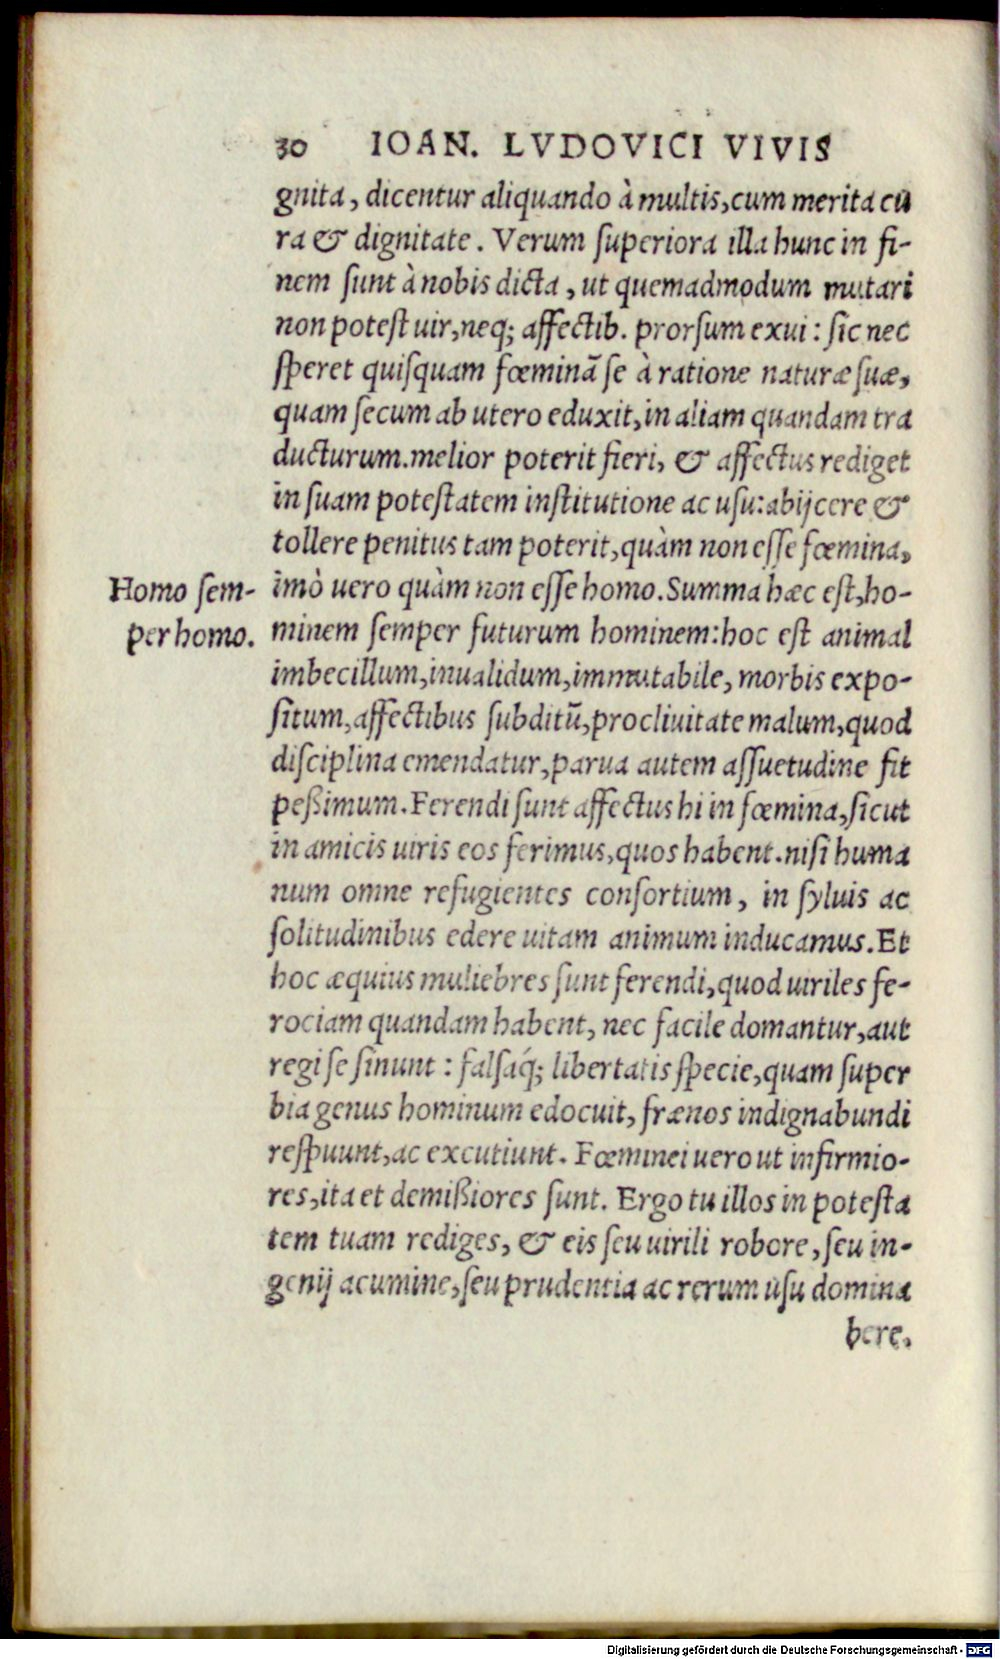 30 IOAN. LVDOVICI VIVIS
gnita, dicentur aliquando à multis, cum merita cu
ra & dignitate. Verum superiora illa hunc in fi-
nem sunt à nobis dicta, ut quemadmodum mutari
non potest uir, neq; affectib. prorsum exui: sic nec
speret quisquam fœminã se à ratione naturæ suæ,
quam secum ab utero eduxit, in aliam quandam tra
ducturum. melior poterit fieri, & affectus rediget
in suam potestatem institutione ac usu: abijcere &
tollere penitus tam poterit, quàm non esse fœmina,
Homo sem-
per homo.
imò uero quàm non esse homo. Summa hæc est, ho-
minem semper futurum hominem: hoc est animal
imbecillum, inualidum, immutabile, morbis expo-
situm, affectibus subditũ, procliuitate malum, quod
disciplina emendatur, parua autem assuetudine fit
peßimum. Ferendi sunt affectus hi in fœmina, sicut
in amicis uiris eos ferimus, quos habent. nisi huma
num omne refugientes consortium, in syluis ac
solitudinibus edere uitam animum inducamus. Et
hoc æquius muliebres sunt ferendi, quod uiriles fe-
rociam quandam habent, nec facile domantur, aut
regi se sinunt: falsaq́; libertatis specie, quam super
bia genus hominum edocuit, frænos indignabundi
respuunt, ac excutiunt. Fœminei uero ut infirmio-
res, ita et demißiores sunt. Ergo tu illos in potesta
tem tuam rediges, & eis seu uirili robore, seu in-
genij acumine, seu prudentia ac rerum usu domina
bere.
Digitalisierung gefördert durch die Deutsche Forschungsgemeinschaft - DFG